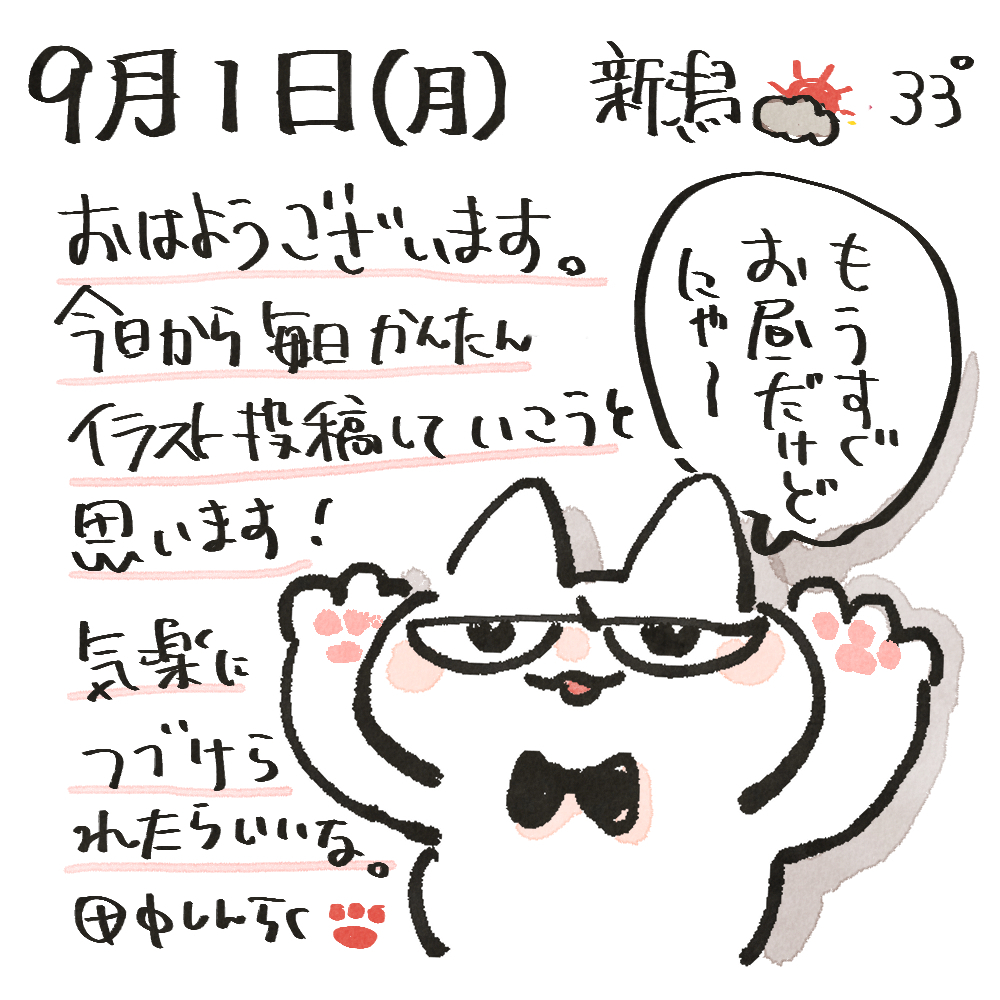 9月1日(月)
新潟 33°
おはようございます。
今日から毎日かんたん
イラスト投稿していこうと
思います!
気楽に
つづけら
れたらいいな。
田中しんらく
もうすぐ
お昼だけど
にゃー